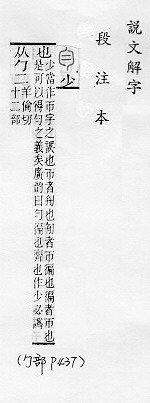 說文解字
段注本
少
也少當作帀字之誤也帀者匊也匊者帀徧也徧者帀也
是可以得勻之義矣廣韵曰勻徧也齊也作少必譌
从勹二羊倫切
十二部
(勹部 P437)